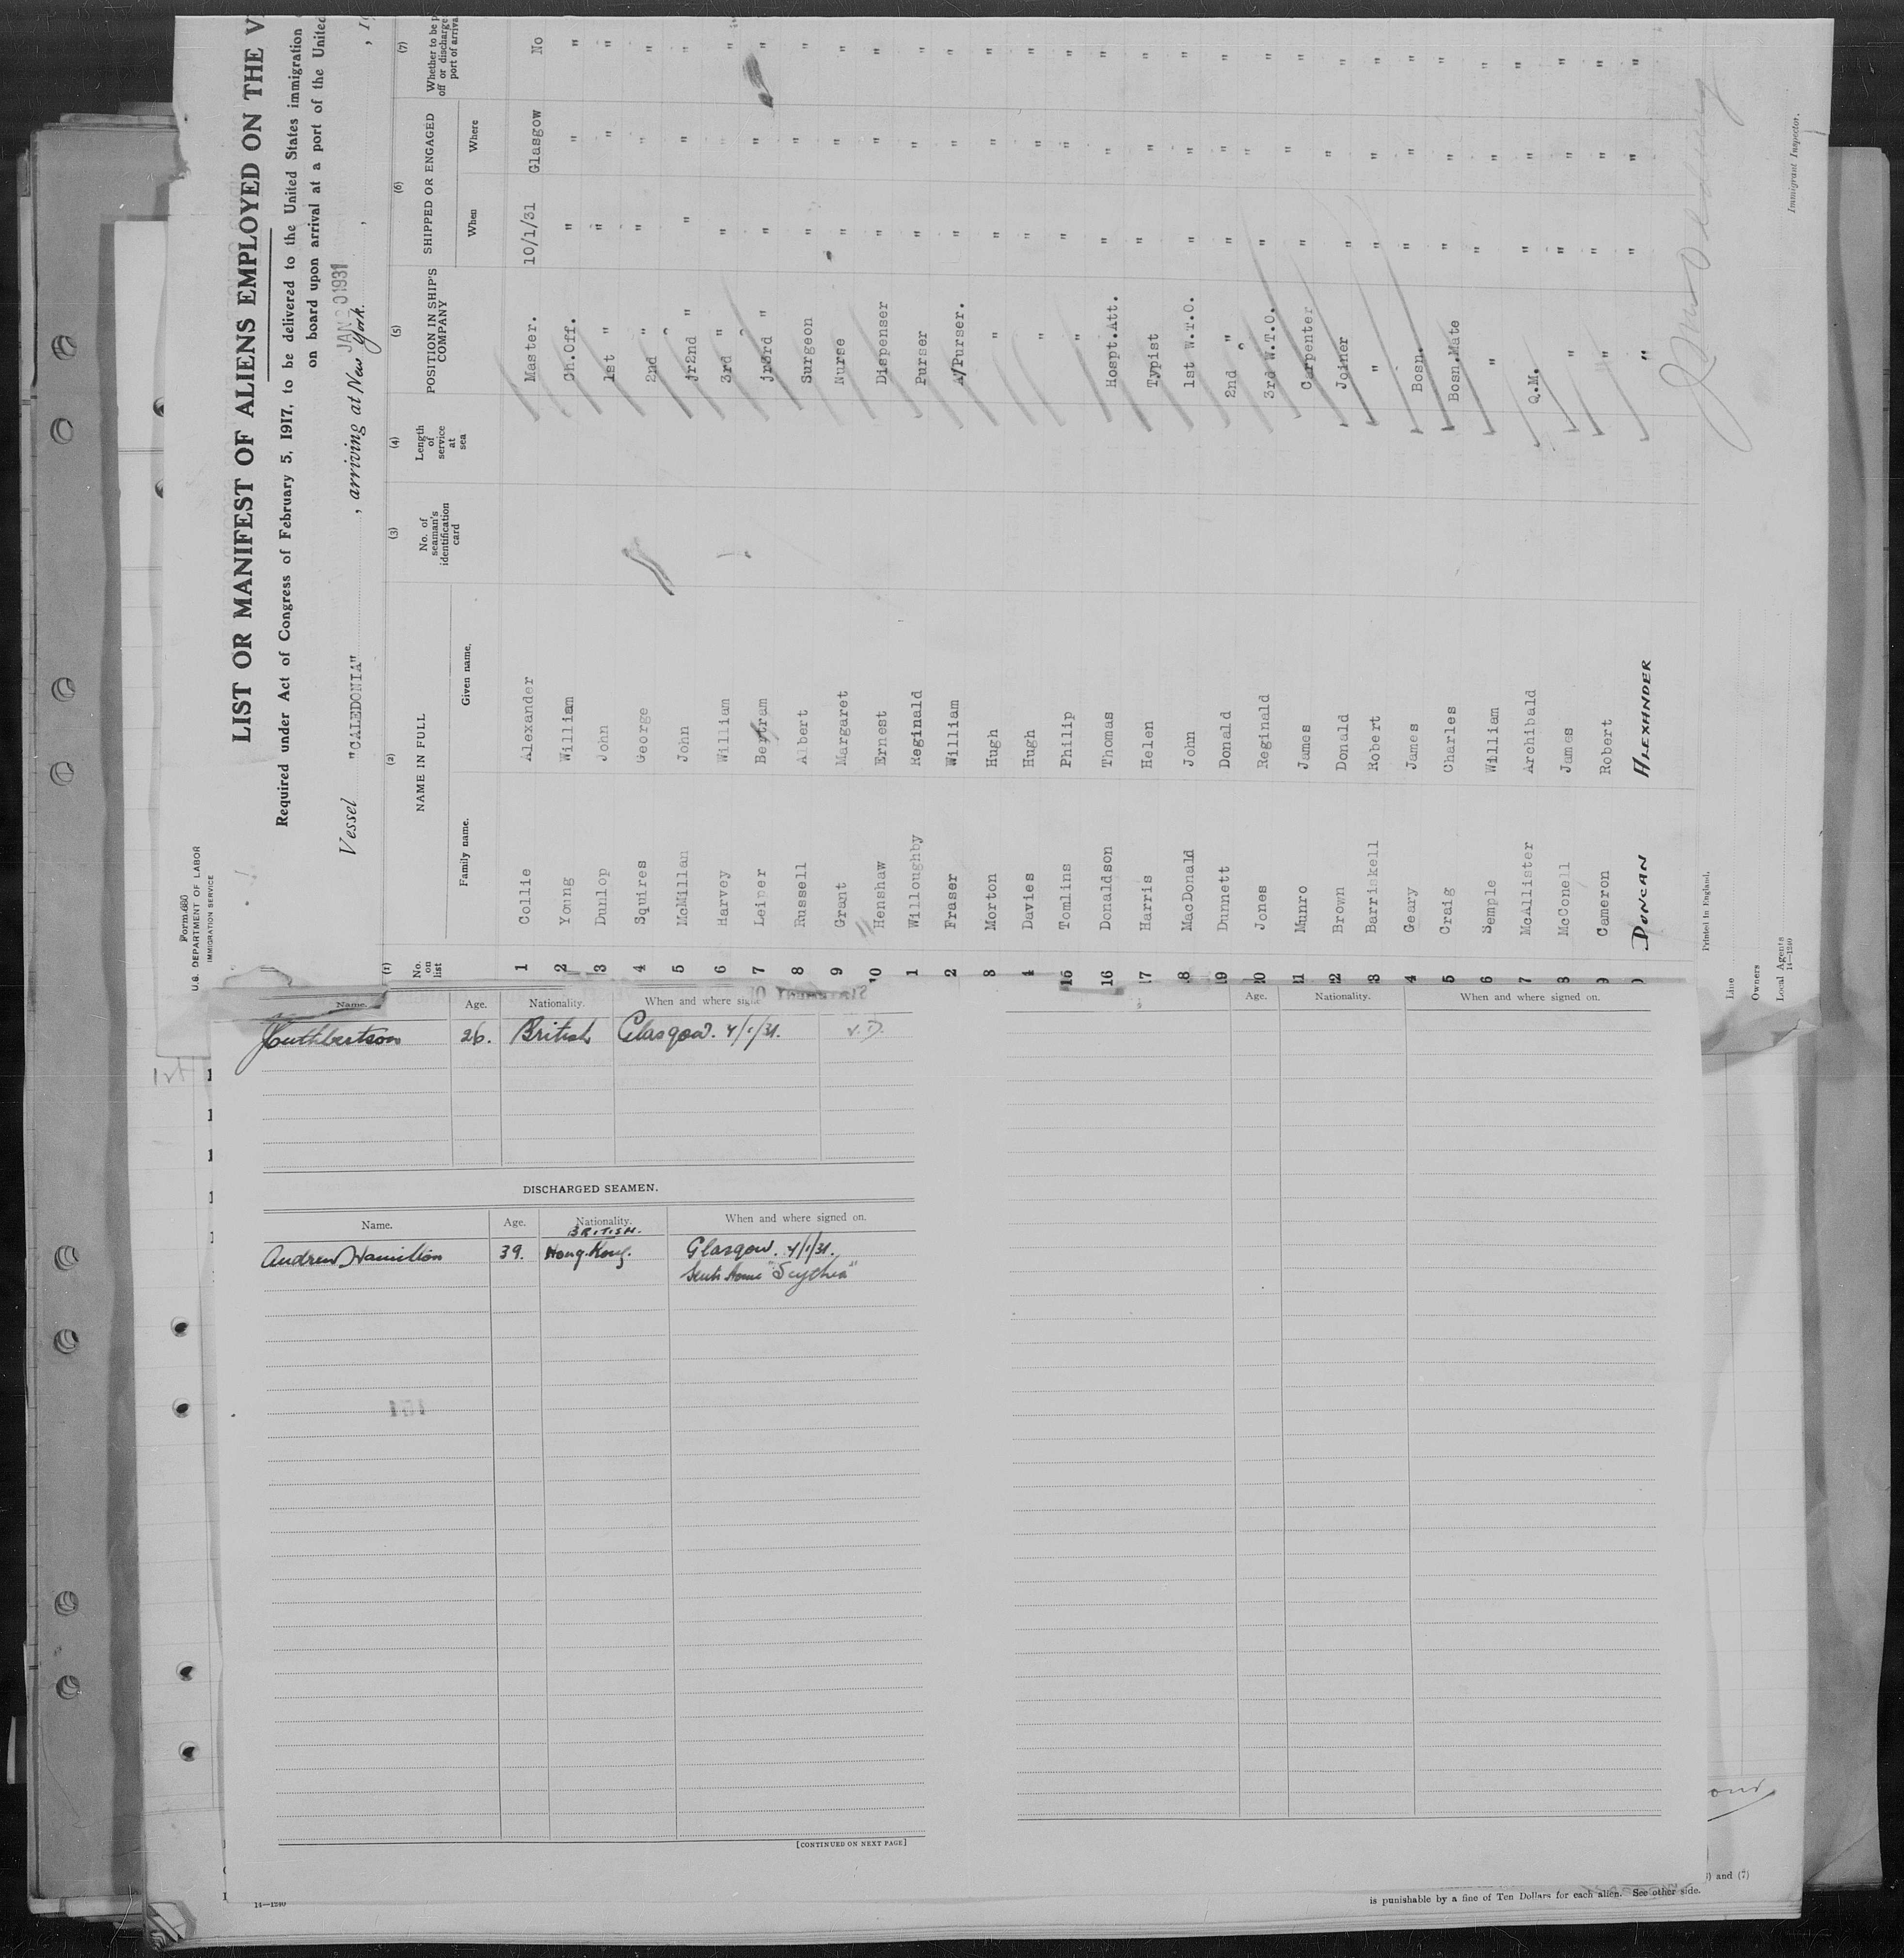 Form 680
U.S. DEPARTMENT OF LABOR
IMMIGRATION SERVICE
LIST OR MANIFEST OF ALIENS EMPLOYED ON THE
Required under Act of Congress of February 5, 1917, to be delivered to the United States immigration
on board upon arrival at a port of the United
Vessel "CALEDONIA" , arriving at New York. ,
(1) (2) (3) (4) (5) (6) (7)
No. on list NAME IN FULL No. of seaman's identification card Length of service at sea POSITION IN SHIP'S COMPANY SHIPPED OR ENGAGED Whether to be
off or discharge
port of arrival
Family name. Given name. When Where
1 Collie Alexander Master. 10/1/31 Glasgow No
2 Young William Ch.Off. " " "
3 Dunlop John 1st " " " "
4 Squires George 2nd " " " "
5 McMillan John jr2nd " " " "
6 Harvey William 3rd " " " "
7 Leiper Bertram jr3rd " " " "
8 Russell Albert Surgeon " " "
9 Grant Margaret Nurse " " "
10 Henshaw Ernest Dispenser " " "
1 Willoughby Reginald Purser " " "
2 Fraser William A/Purser. " " "
3 Morton Hugh " " " "
4 Davies Hugh " " " "
15 Tomlins Philip " " " "
16 Donaldson Thomas Hospt.Att. " " "
17 Harris Helen Typist " " "
18 MacDonald John 1st W.T.O. " " "
19 Dunnett Donald 2nd " " " "
20 Jones Reginald 3rd W.T.O. " " "
21 Munro James Carpenter " " "
22 Brown Donald Joiner " " "
3 Barriskell Robert " " " "
4 Geary James Bosn. " " "
5 Craig Charles Bosn.Mate " " "
6 Semple William " " " "
7 McAllister Archibald Q.M. " " "
8 McConell James " " " "
9 Cameron Robert " " " "
DUNCAN ALEXANDER " " " "
Printed in England.
Line
Owners
Local Agents
14—1240
Immigrant Inspector.
Name. Age. Nationality. When and where
Cuthbertson 26. British Glasgow. 4/1/31. V.D.
DISCHARGED SEAMEN.
Name. Age. Nationality. When and where signed on.
BRITISH.
Andrew Hamilton 39. Hong Kong. Glasgow. 4/1/31.
Sent Home "Scythia"
[CONTINUED ON NEXT PAGE]
Age. Nationality. When and where signed on.
1st
and (7)
is punishable by a fine of Ten Dollars for each alien. See other side.
14—1240